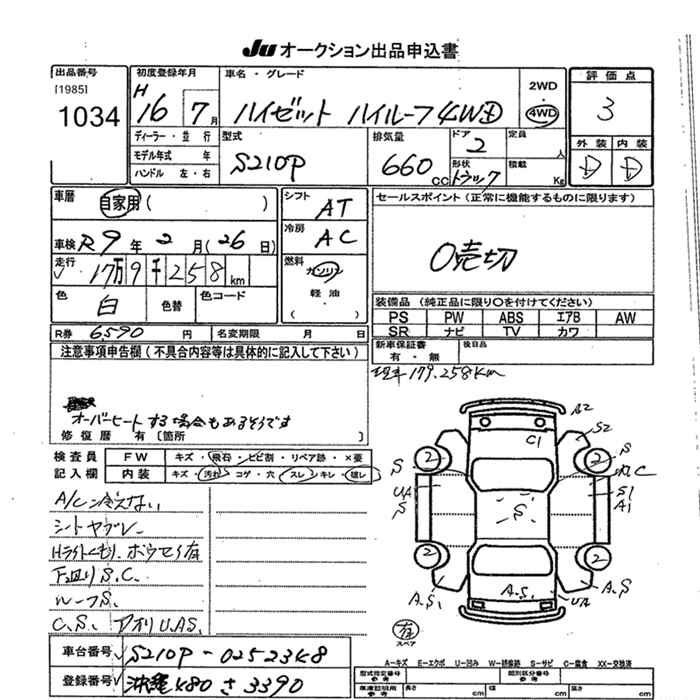 JU オークション出品申込書
出品番号
[1985]
1034
初度登録年月
H 16 7月
車名・グレード
ハイゼット ハイルーフ 4WD
2WD
4WD
評価点
3
外装 内装
D D
ディーラー・並行
モデル年式 年
ハンドル 左・右
型式
S210P
排気量
660 CC
ドア
2
形状
トラック
定員
人
積載
Kg
車歴
自家用 ( )
車検 R 9 年 2 月 ( 26 日)
走行
17万9千258 km
色
白
色替
色コード
シフト
AT
冷房
AC
燃料
ガソリン
軽油
( )
セールスポイント (正常に機能するものに限ります)
0売切
装備品 (純正品に限り○を付けてください)
PS PW ABS エアB AW
SR ナビ TV カワ
R券 6,590 円
名変期限 月 日
新車保証書
有・無
後日品
179.258km
注意事項申告欄 (不具合内容等は具体的に記入して下さい)
オーバーヒートする場合もあるそうです
修復歴 有 〔箇所 〕
検査員
記入欄
FW キズ・飛石・ヒビ割・リペア跡・×要
内装 キズ・汚れ・コゲ・穴・スレ・キレ・壊レ
A/C冷えない
シートヤブレ
Hライトくもり、ボウセイ有
下廻りS.C.
ルーフS.
C.S. アオリU.A.S.
車台番号 S210P-0252348
登録番号 沖縄 480 さ 3390
A2
S2
C1
S
2
2
UA
S
S
C
S1
A1
S
2
2
A.S.
A.S1
A.S
UA
有
スペア
A-キズ E-エクボ U-凹み W-補修跡 S-サビ C-腐食 XX-交換済
型式指定番号
参考
類別区分番号
参考
車庫証明用
参考
長さ cm
幅 cm
高さ cm